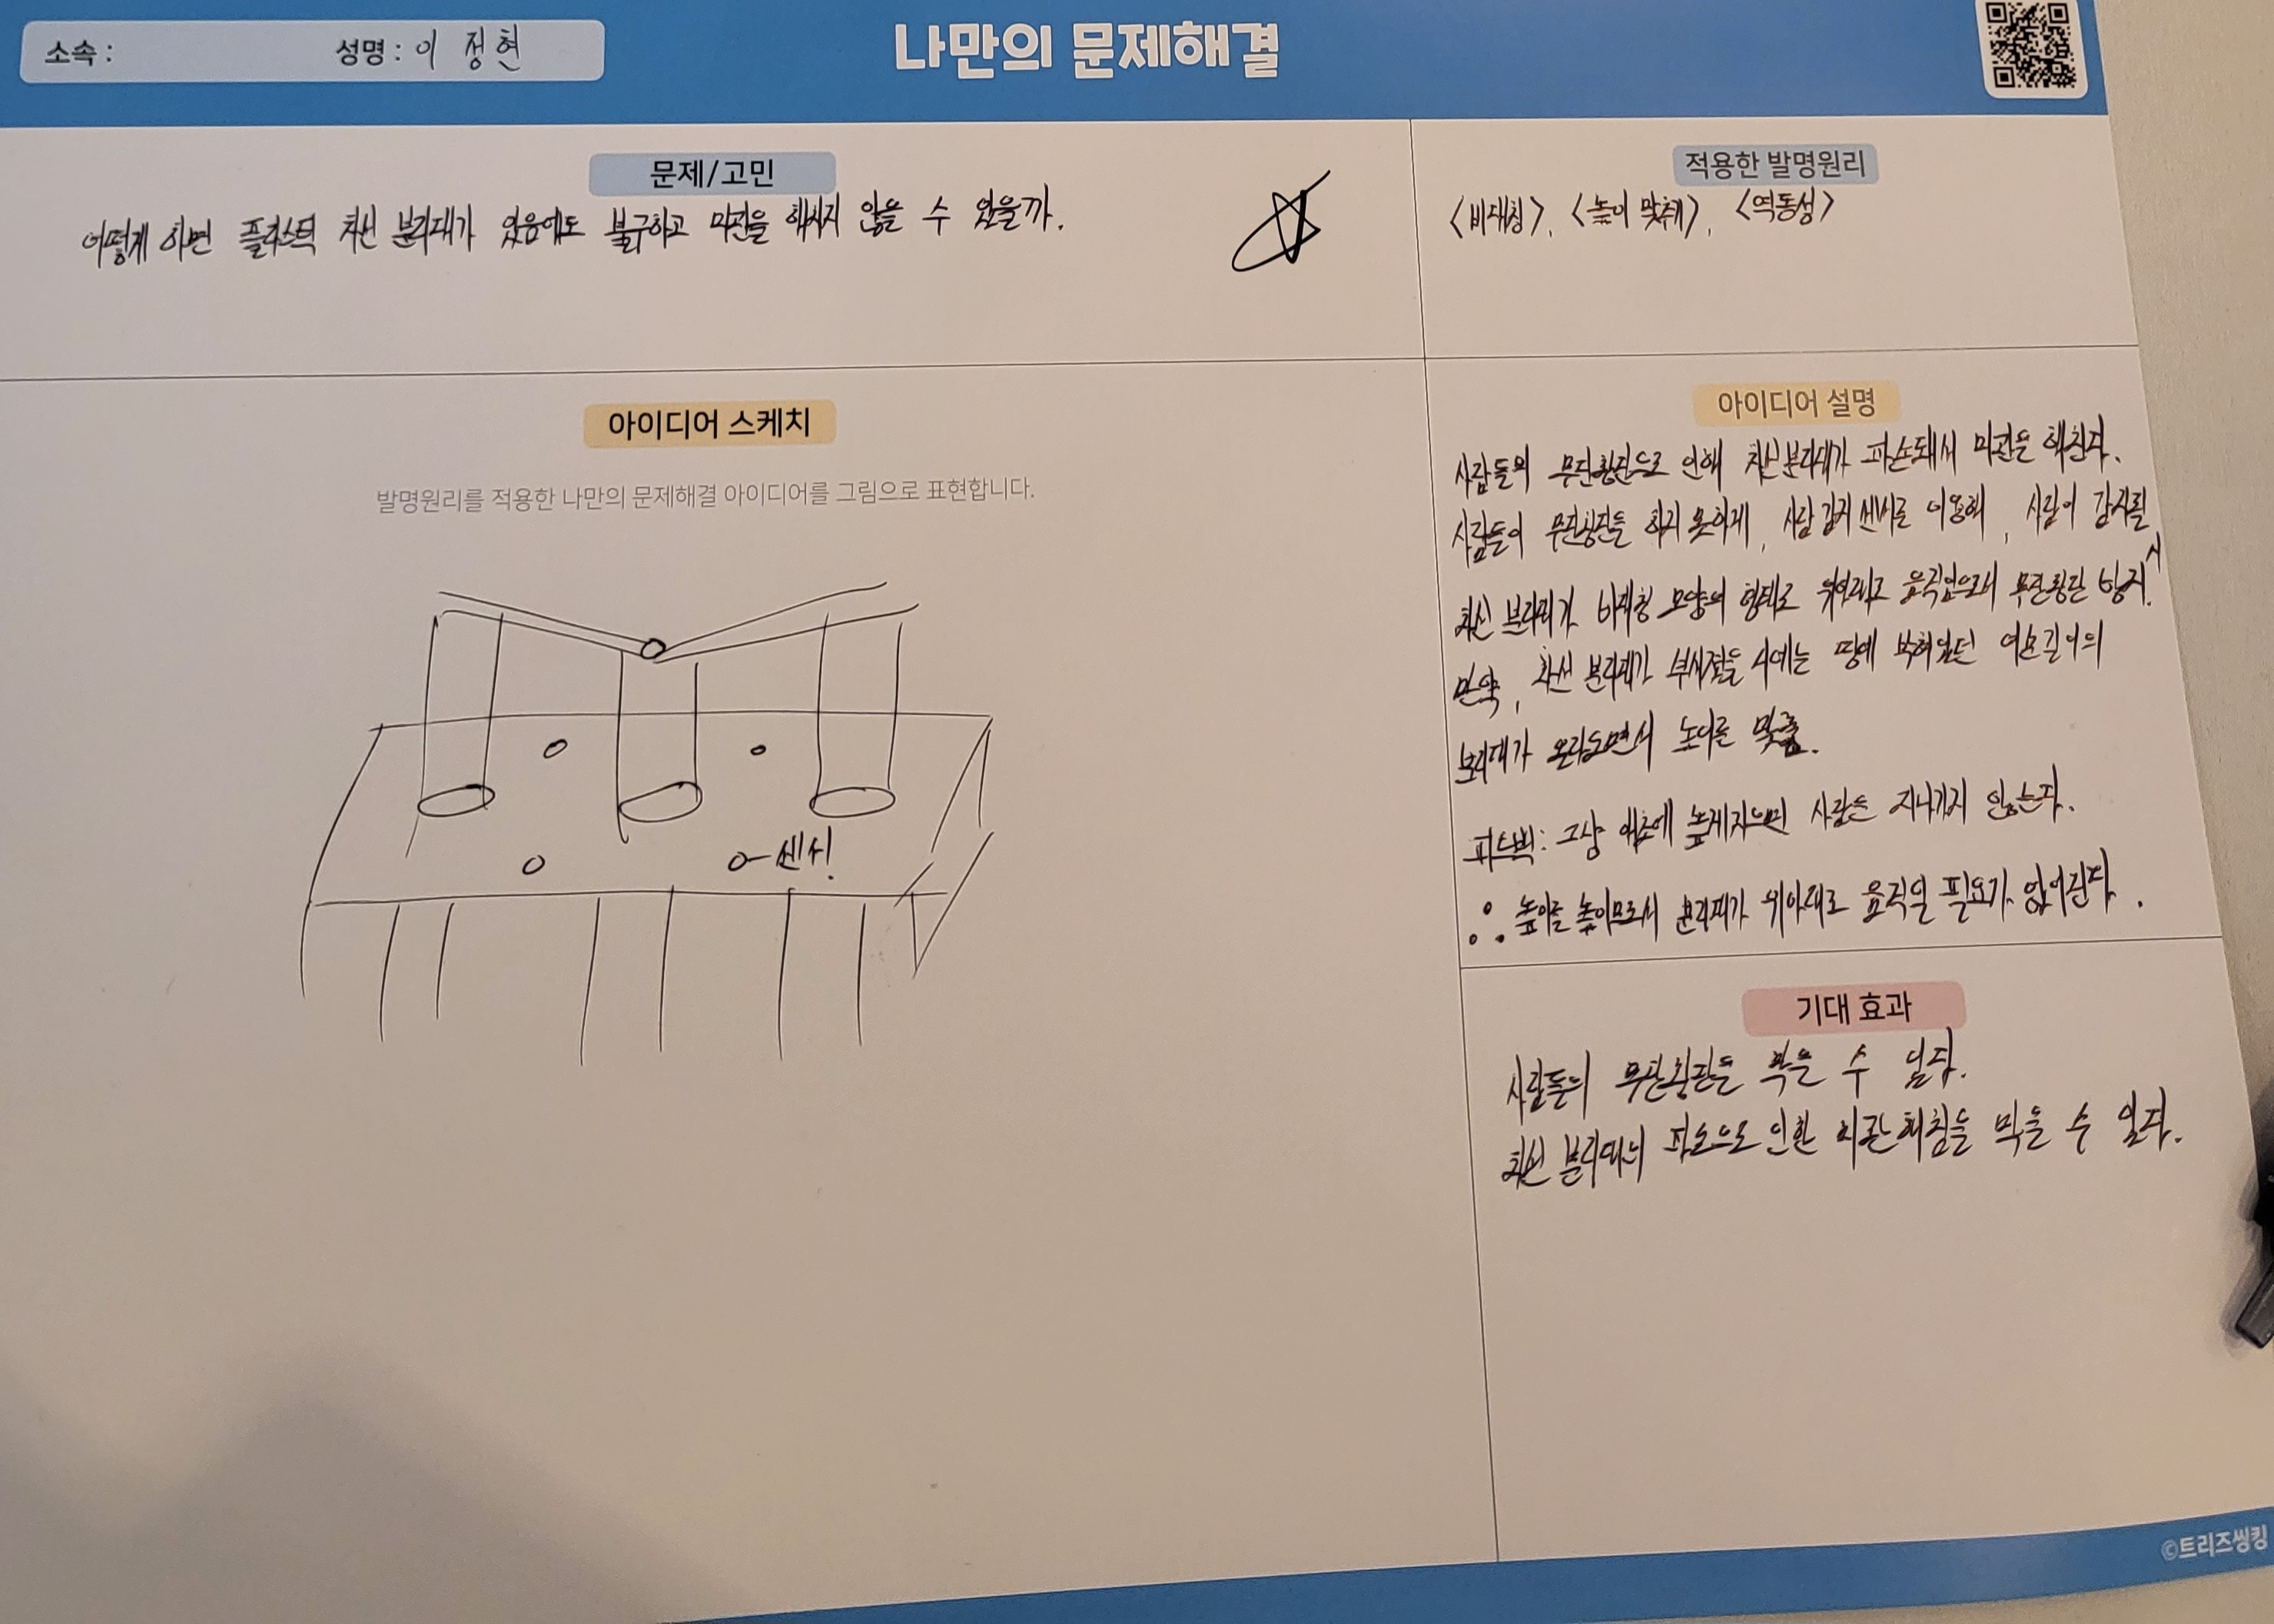 소속 : 성명 : 이 정현
나만의 문제해결
문제/고민
어떻게 하면 플라스틱 차선 분리대가 있음에도 불구하고 미관을 해치지 않을 수 있을까.
적용한 발명원리
<비대칭>, <높이 맞추기>, <역동성>
아이디어 스케치
발명원리를 적용한 나만의 문제해결 아이디어를 그림으로 표현합니다.
센서!
아이디어 설명
사람들의 무단횡단으로 인해 차선분리대가 파손돼서 미관을 해친다.
사람들이 무단횡단을 하지 못하게, 사람 감지 센서를 이용해, 사람이 감지될 시
차선 분리대가 비대칭 모양의 형태로 위아래로 움직임으로서 무단횡단 방지.
만약, 차선 분리대가 부서졌을 시에는 땅에 박혀있던 여분길이의
분리대가 올라오면서 높이를 맞춤.
피드백: 그냥 애초에 높게지으면 사람은 지나가지 않는다.
∴ 높이를 높이므로서 분리대가 위아래로 움직일 필요가 없어진다.
기대 효과
사람들의 무단횡단을 막을 수 있다.
차선 분리대의 파손으로 인한 미관 해침을 막을 수 있다.
©트리즈씽킹